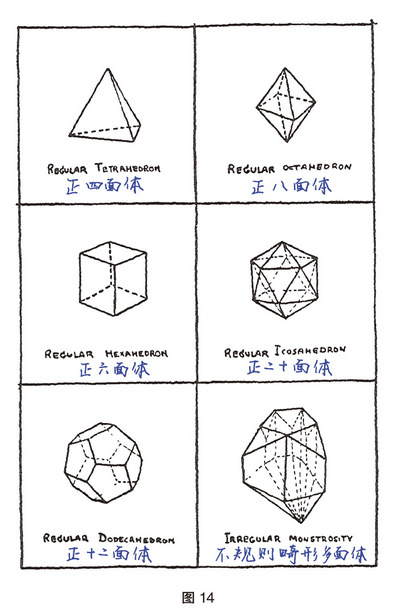 REGULAR TETRAHEDRON
正四面体
REGULAR OCTAHEDRON
正八面体
REGULAR HEXAHEDRON
正六面体
REGULAR ICOSAHEDRON
正二十面体
REGULAR DODECAHEDRON
正十二面体
IRREGULAR MONSTROSITY
不规则畸形多面体
图 14